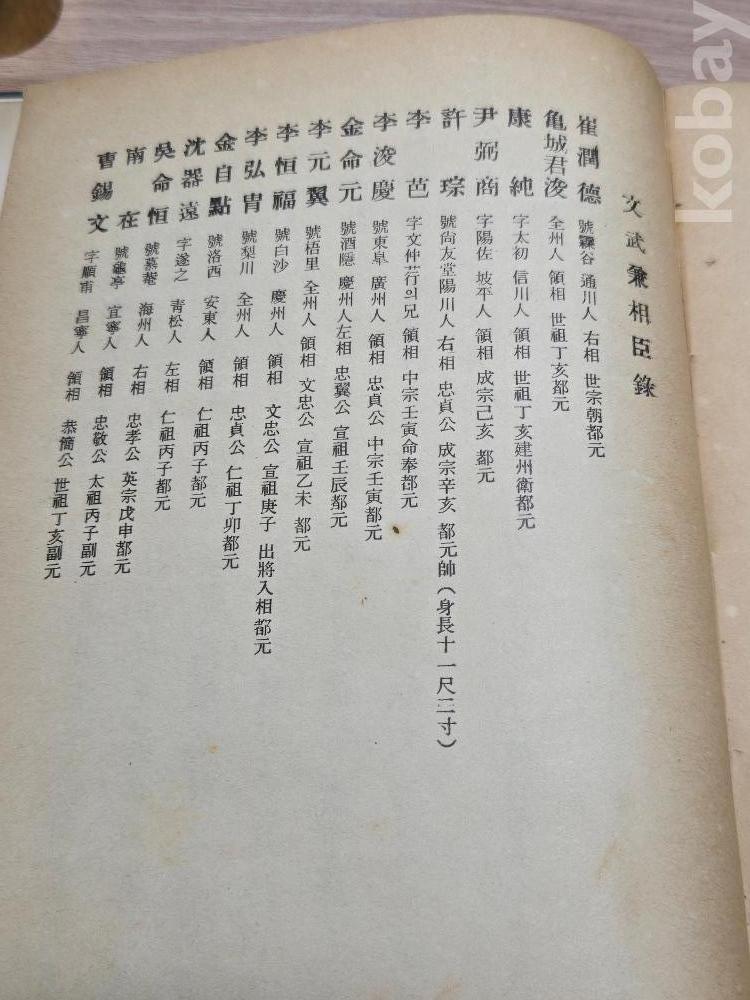 文武兼相臣錄
崔潤德 號霖谷 通川人 右相 世宗朝都元
亀城君浚 全州人 領相 世祖丁亥都元
康純 字太初 信川人 領相 世祖丁亥建州衛都元
尹弼商 字陽佐 坡平人 領相 成宗己亥 都元
許琮 號尙友堂陽川人 右相 忠貞公 成宗辛亥 都元帥(身長十一尺二寸)
李芑 字文仲荇의兄 領相 中宗壬寅命奉都元
李浚慶 號東皐 廣州人 領相 忠貞公 中宗壬寅都元
金命元 號酒隱 慶州人左相 忠翼公 宣祖壬辰都元
李元翼 號梧里 全州人 領相 文忠公 宣祖乙未 都元
李恒福 號白沙 慶州人 領相 文忠公 宣祖庚子 出將入相都元
李弘胄 號梨川 全州人 領相 忠貞公 仁祖丁卯都元
金自點 號洛西 安東人 領相 仁祖丙子都元
沈器遠 字遂之 靑松人 左相 仁祖丙子都元
吳命恒 號慕菴 海州人 右相 忠孝公 英宗戊申都元
南在 號龜亭 宜寧人 領相 忠敬公 太祖丙子副元
曹錫文 字順甫 昌寧人 領相 恭簡公 世祖丁亥副元
kobay